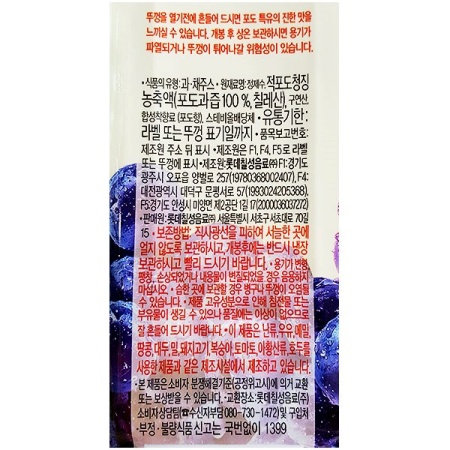 뚜껑을 열기전에 흔들어 드시면 포도 특유의 진한 맛을
느끼실 수 있습니다. 개봉 후 상온 보관하시면 용기가
파열되거나 뚜껑이 튀어나갈 위험성이 있습니다.
•식품의 유형: 과·채주스 •원재료명: 정제수, 적포도청징
농축액(포도과즙 100 %, 칠레산), 구연산,
합성착향료 (포도향), 스테비올배당체 •유통기한:
라벨 또는 뚜껑 표기일까지 •품목보고번호:
제조원 주소 뒤 표시 •제조원은 F1, F4, F5로 라벨
또는 뚜껑에 표시 •제조원: 롯데칠성음료㈜ F1:경기도
광주시 오포읍 양벌로 257(19780368002407), F4:
대전광역시 대덕구 문평서로 57(1993024205368),
F5:경기도 안성시 미양면 제2공단 1길 17(2000036037272)
•판매원: 롯데칠성음료㈜ 서울특별시 서초구 서초대로 70길
15 •보존방법: 직사광선을 피하여 서늘한 곳에
얼지 않도록 보관하시고, 개봉후에는 반드시 냉장
보관하시고 빨리 드시기 바랍니다. •용기가 변형,
팽창, 손상되었거나 내용물이 변질되었을 경우 음용하지
마십시오. •습한 곳에 보관할 경우 병구나 뚜껑이 오염될
수 있습니다. •제품 고유성분으로 인해 침전물 또는
부유물이 생길 수 있으나 품질에는 이상이 없으므로
잘 흔들어 드시기 바랍니다. •이 제품은 난류, 우유, 메밀,
땅콩, 대두, 밀, 돼지고기, 복숭아, 토마토, 아황산류, 호두를
사용한 제품과 같은 제조시설에서 제조하고 있습니다.
•본 제품은 소비자 분쟁해결기준(공정위고시)에 의거 교환
또는 보상받을 수 있습니다. •교환장소: 롯데칠성음료㈜
소비자상담팀(☎수신자부담 080-730-1472) 및 구입처
•부정·불량식품 신고는 국번없이 1399